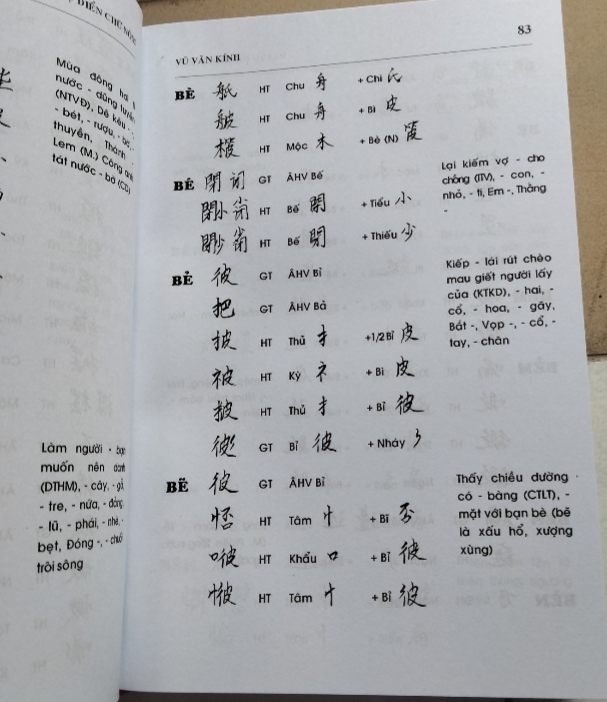 Ự ĐIỂN CHỮ NÔM
Mùa đông hạ
nước - dùng tuyền
(NTVĐ), Dê kêu -
- bét, - rượu, - bè,
thuyền, Thành
Lem (M.) Công anh
tát nước - bờ (CD)
Làm người - bạn
muốn nên danh
(DTHM), - cây, - gà,
- tre, - nứa, - đảng,
- lũ, - phái, - nhè,
bẹt, Đóng -, - chuối
trôi sông
VŨ VĂN KÍNH 83
BÈ 舐 HT Chu 舟 + Chi 氏
舨 HT Chu 舟 + Bì 皮
HT Mộc 木 + Bè (N)
BÉ 閉 GT ÂHV Bế
HT Bế 閉 + Tiểu 小
HT Bế 閉 + Thiếu 少
Lại kiếm vợ - cho
chồng (TTV), - con, -
nhỏ, - tí, Em -, Thằng
-
BẺ 彼 GT ÂHV Bỉ
把 GT ÂHV Bả
披 HT Thủ 扌 +1/2Bỉ 皮
HT Kỳ 礻 + Bì 皮
HT Thủ 扌 + Bỉ 彼
GT Bỉ 彼 + Nháy
Kiếp - lái rút chèo
mau giết người lấy
của (KTKD), - hai, -
cổ, - hoa, - gãy,
Bắt -, Vọp -, - cổ, -
tay, - chân
BẼ 彼 GT ÂHV Bỉ
HT Tâm 忄 + Bĩ 否
HT Khẩu 口 + Bỉ 彼
HT Tâm 忄 + Bỉ 彼
Thấy chiều dường
có - bàng (CTLT), -
mặt với bạn bè (bẽ
là xấu hổ, xượng
xùng)